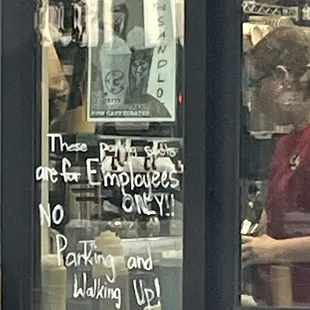 THE SANDLO
NOW CAFFEINATED
These parking spots
are for Employees
ONLY!!
NO
Parking and
Walking Up!